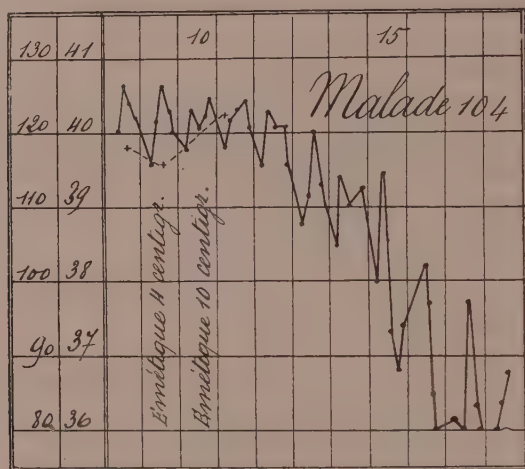 10 15
130 41
Malade 104
120 40
110 39
100 38
90 37
80 36
Émétique 4 centigr.
Émétique 10 centigr.